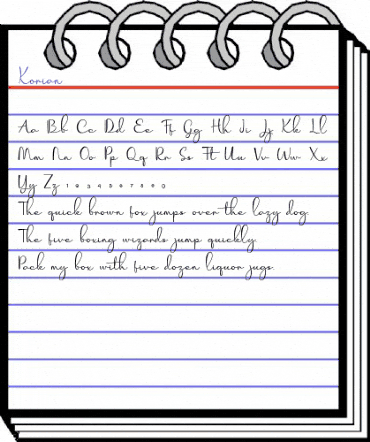 Korian
Aa Bb Cc Dd Ee Ff Gg Hh Ii Jj Kk Ll
Mm Nn Oo Pp Qq Rr Ss Tt Uu Vv Ww Xx
Yy Zz 1 2 3 4 5 6 7 8 9 0
The quick brown fox jumps over the lazy dog.
The five boxing wizards jump quickly.
Pack my box with five dozen liquor jugs.